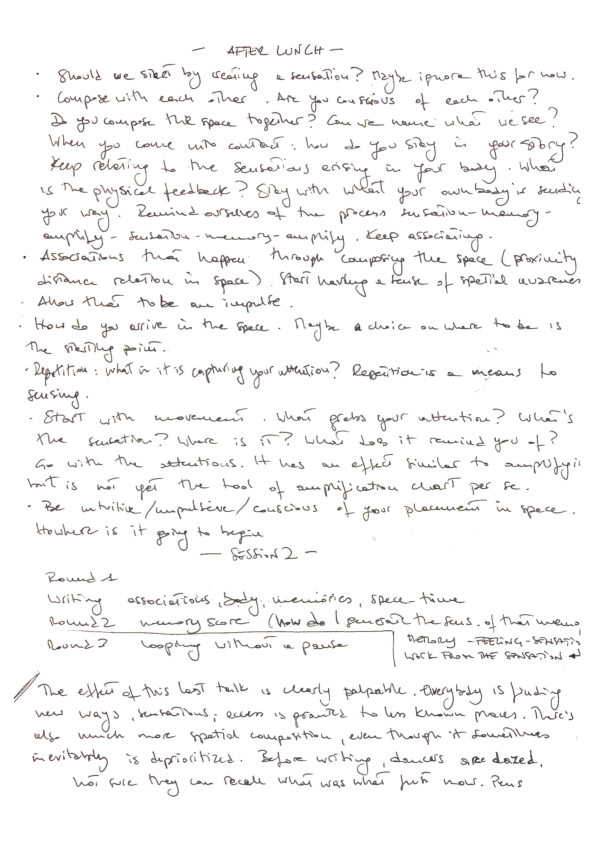 — AFTER LUNCH —
· Should we start by creating a sensation? Maybe ignore this for now.
· Compose with each other. Are you conscious of each other?
Do you compose the space together? Can we name what we see?
When you come into contact: how do you stay in your story?
Keep relating to the sensations arising in your body. What
is the physical feedback? Stay with what your own body is sending
your way. Remind ourselves of the process sensation-memory-
amplify- sensation-memory-amplify. Keep associating.
· Associations that happen through composing the space (proximity
distance relation in space). Start having a sense of spatial awareness
· Allow that to be an impulse.
· How do you arrive in the space. Maybe a choice on where to be is
the starting point.
· Repetition: what in it is capturing your attention? Repetition is a means to
sensing.
· Start with movement. What grabs your attention? What's
the sensation? Where is it? What does it remind you of?
Go with the attentions. It has an effect similar to amplifyi
but is not yet the tool of amplification chart per se.
· Be intuitive/impulsive/conscious of your placement in space.
is it going to begin
— SESSION 2 —
Round 1
Writing associations, body, memories, space time
Round 2 memory score (how do I generate the sens. of that memo
Round 3 looping without a pause
MEMORY - FEELING - SENSATIO
WORK FROM THE SENSATION
The effect of this last talk is clearly palpable. Everybody is finding
new ways, sensations; access is granted to less known places. There's
also much more spatial composition, even though it sometimes
inevitably is deprioritized. Before writing, dancers are dazed,
not sure they can recall what was what just now. Pens